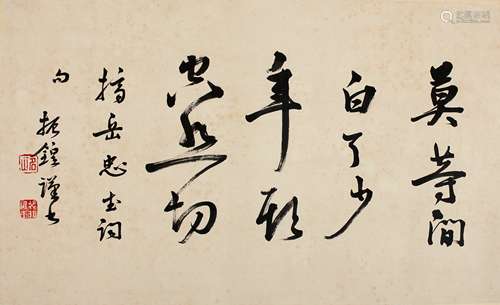 莫等闲
白了少
年头
空悲切
摘岳忠武词
句 振镗谨书